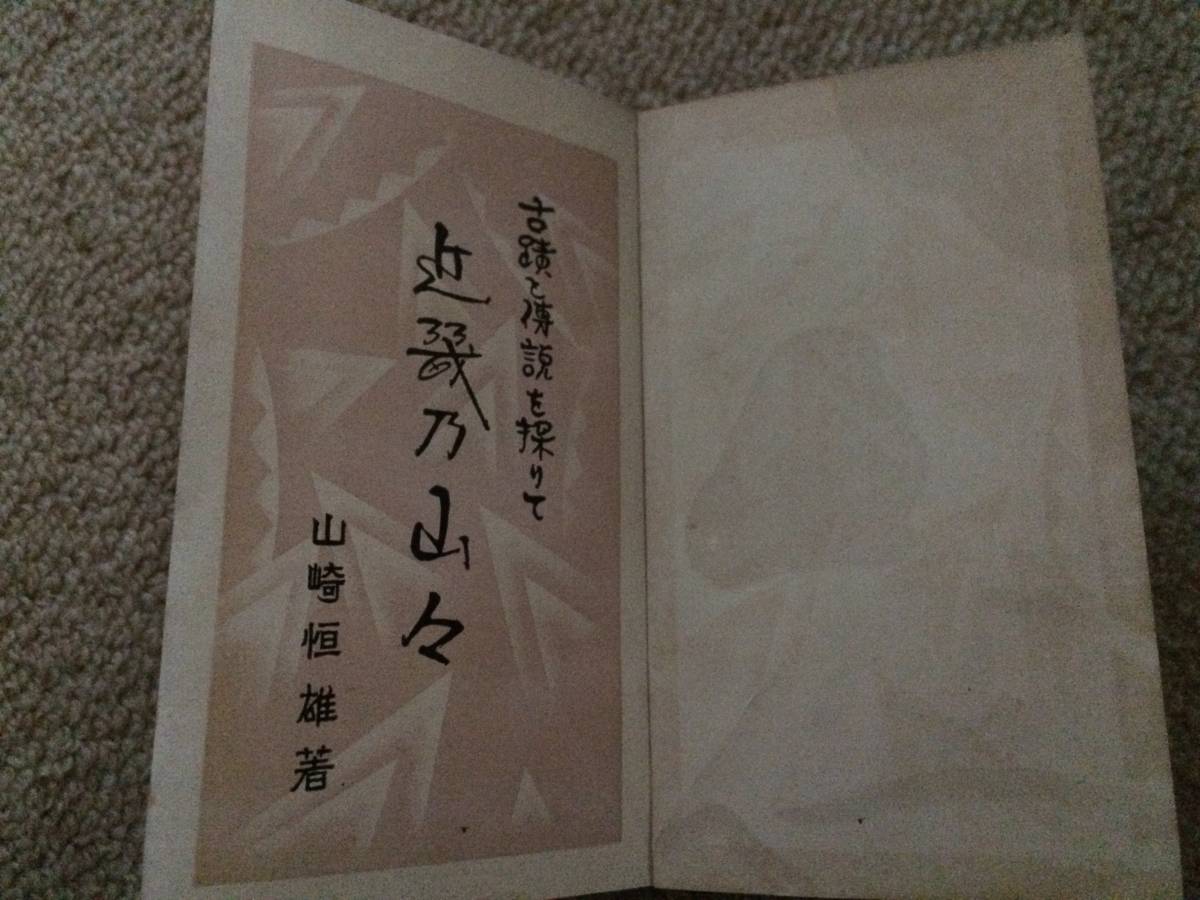 古蹟と傳説を探りて
近畿乃山々
山崎恒雄著